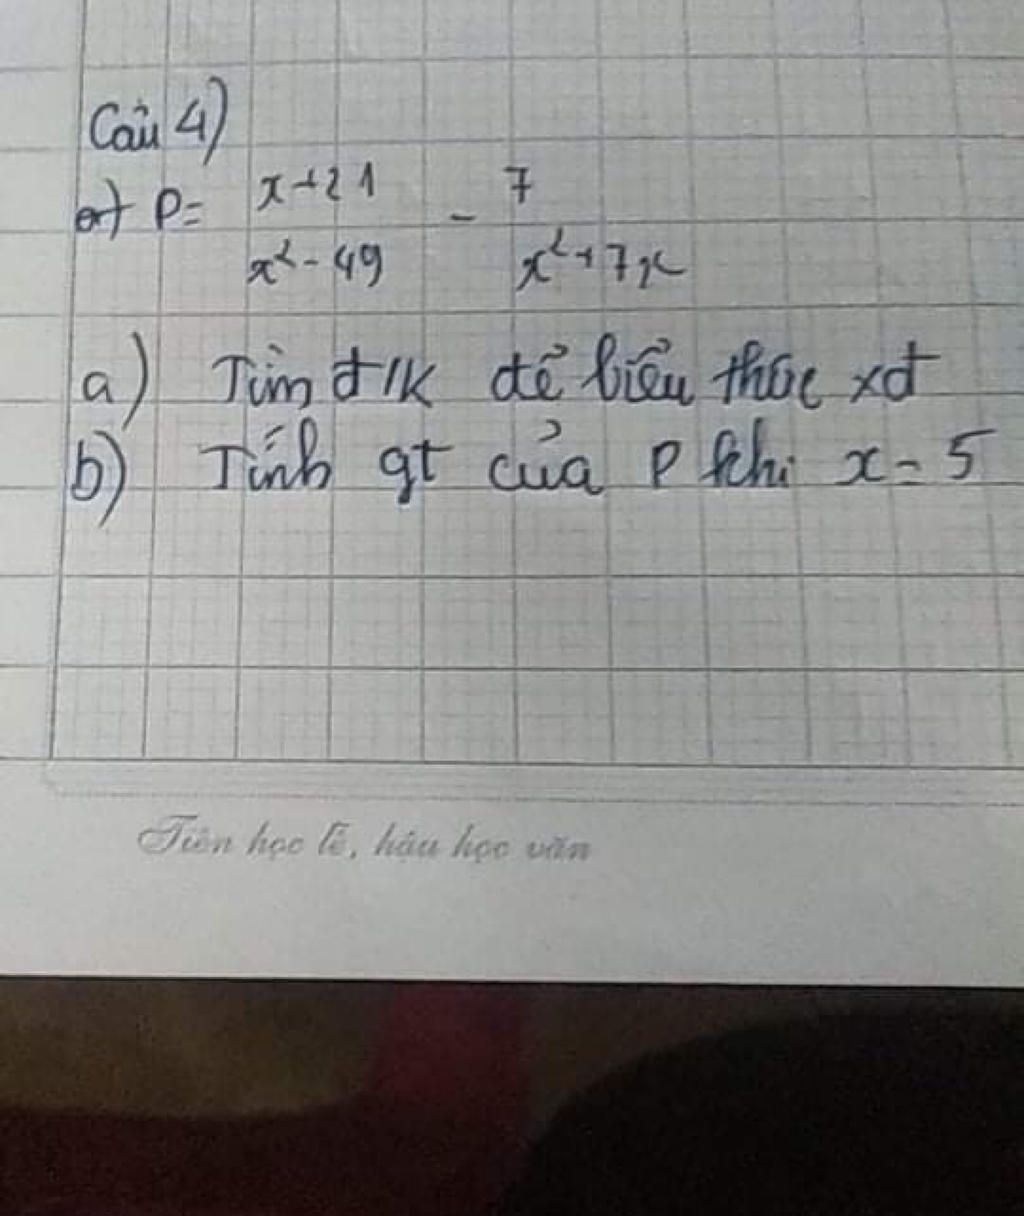 Câu 4)
P = x+21 / x²-49 - 7 / x²+7x
a) Tìm đ/k để biểu thức xđ
b) Tính gt của P khi x = 5
Tiên học lễ, hậu học văn